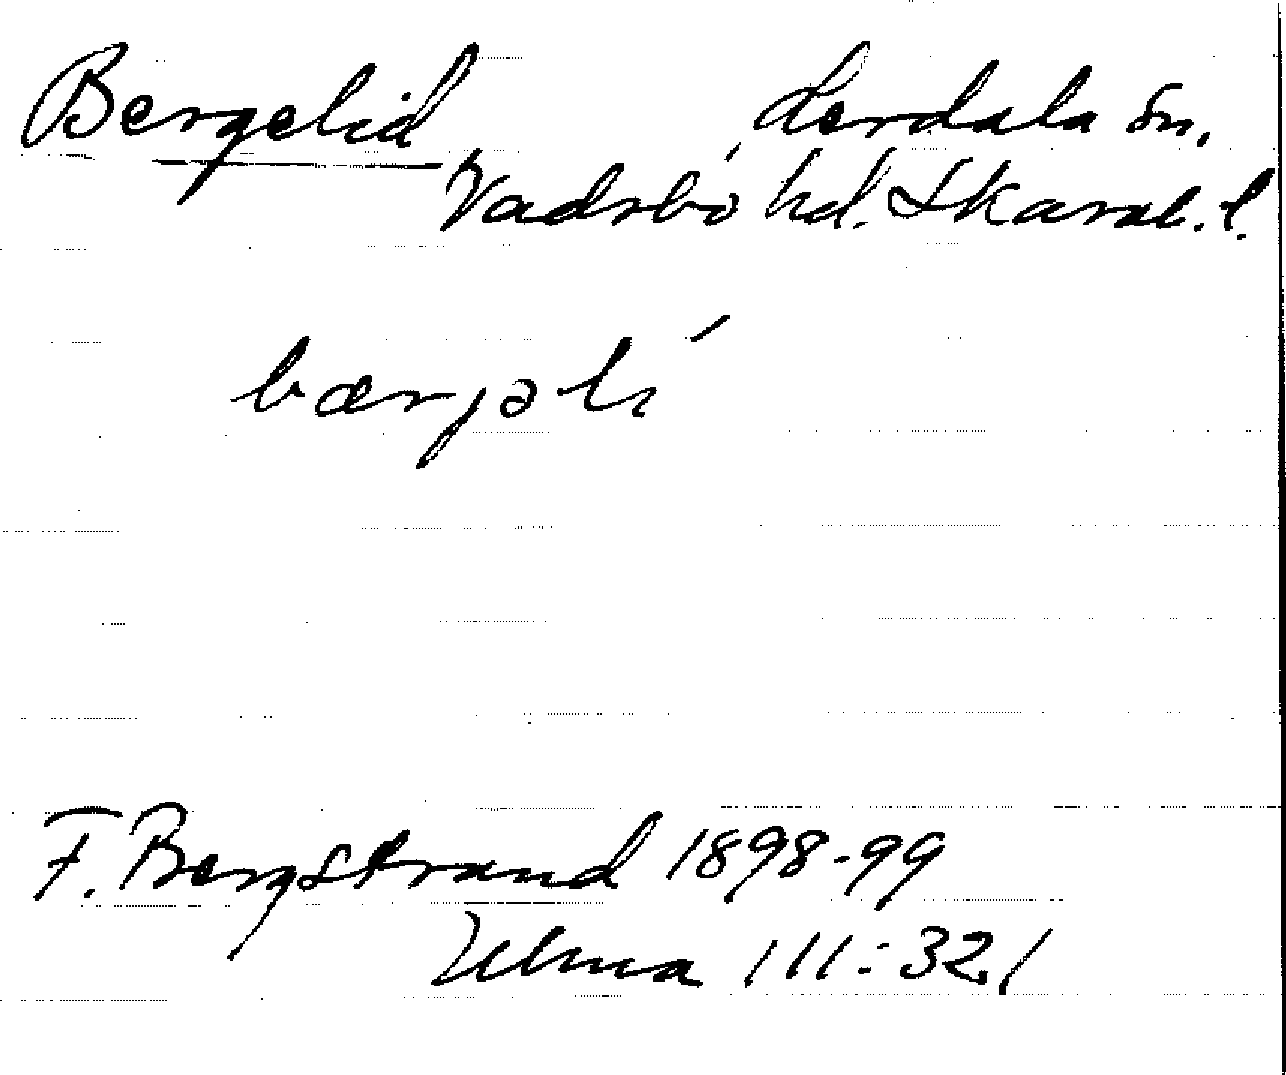 Bergelid Lerdala sn,
Vadsbo hd. Skarab. l.
bærjəli´
F. Bergstrand 1898-99
Ulma 111:321